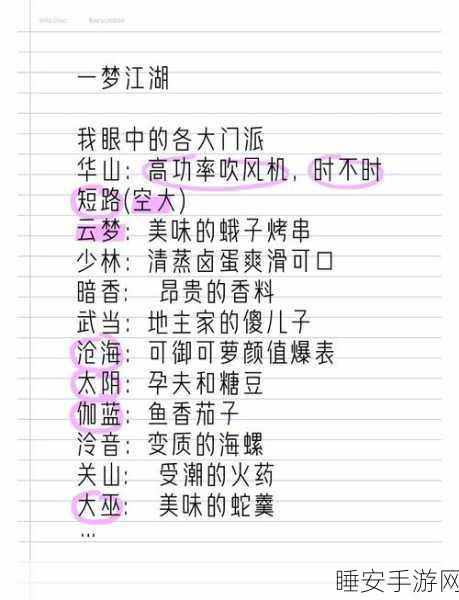 一梦江湖
我眼中的各大门派
华山：高功率吹风机，时不时
短路(空大)
云梦：美味的蛾子烤串
少林：清蒸卤蛋爽滑可口
暗香： 昂贵的香料
武当：地主家的傻儿子
沧海：可御可萝颜值爆表
太阴：孕夫和糖豆
伽蓝：鱼香茄子
泠音：变质的海螺
关山： 受潮的火药
大巫： 美味的蛇羹
...
睡安手游网